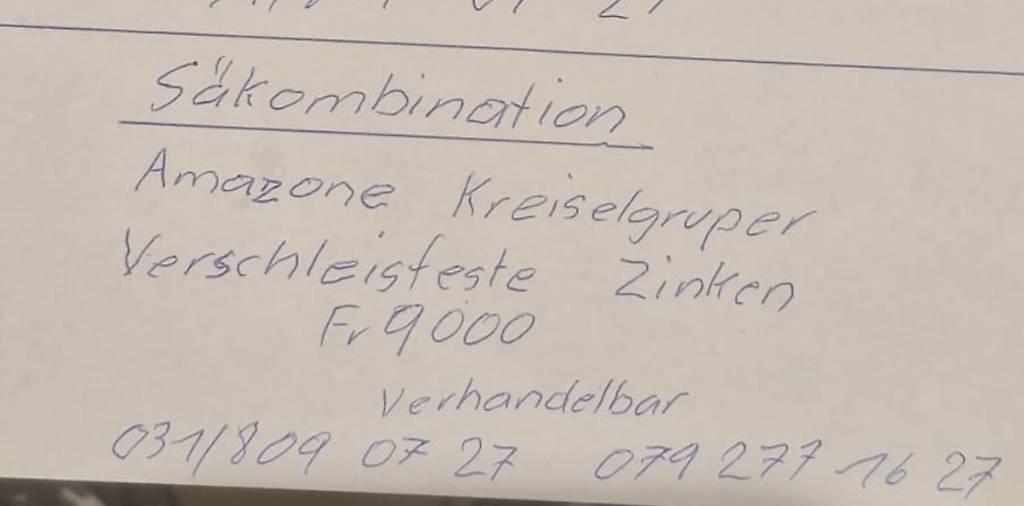 Säkombination
Amazone Kreiselgruper
Verschleisfeste Zinken
Fr 9000
Verhandelbar
031/809 07 27 079 277 16 27